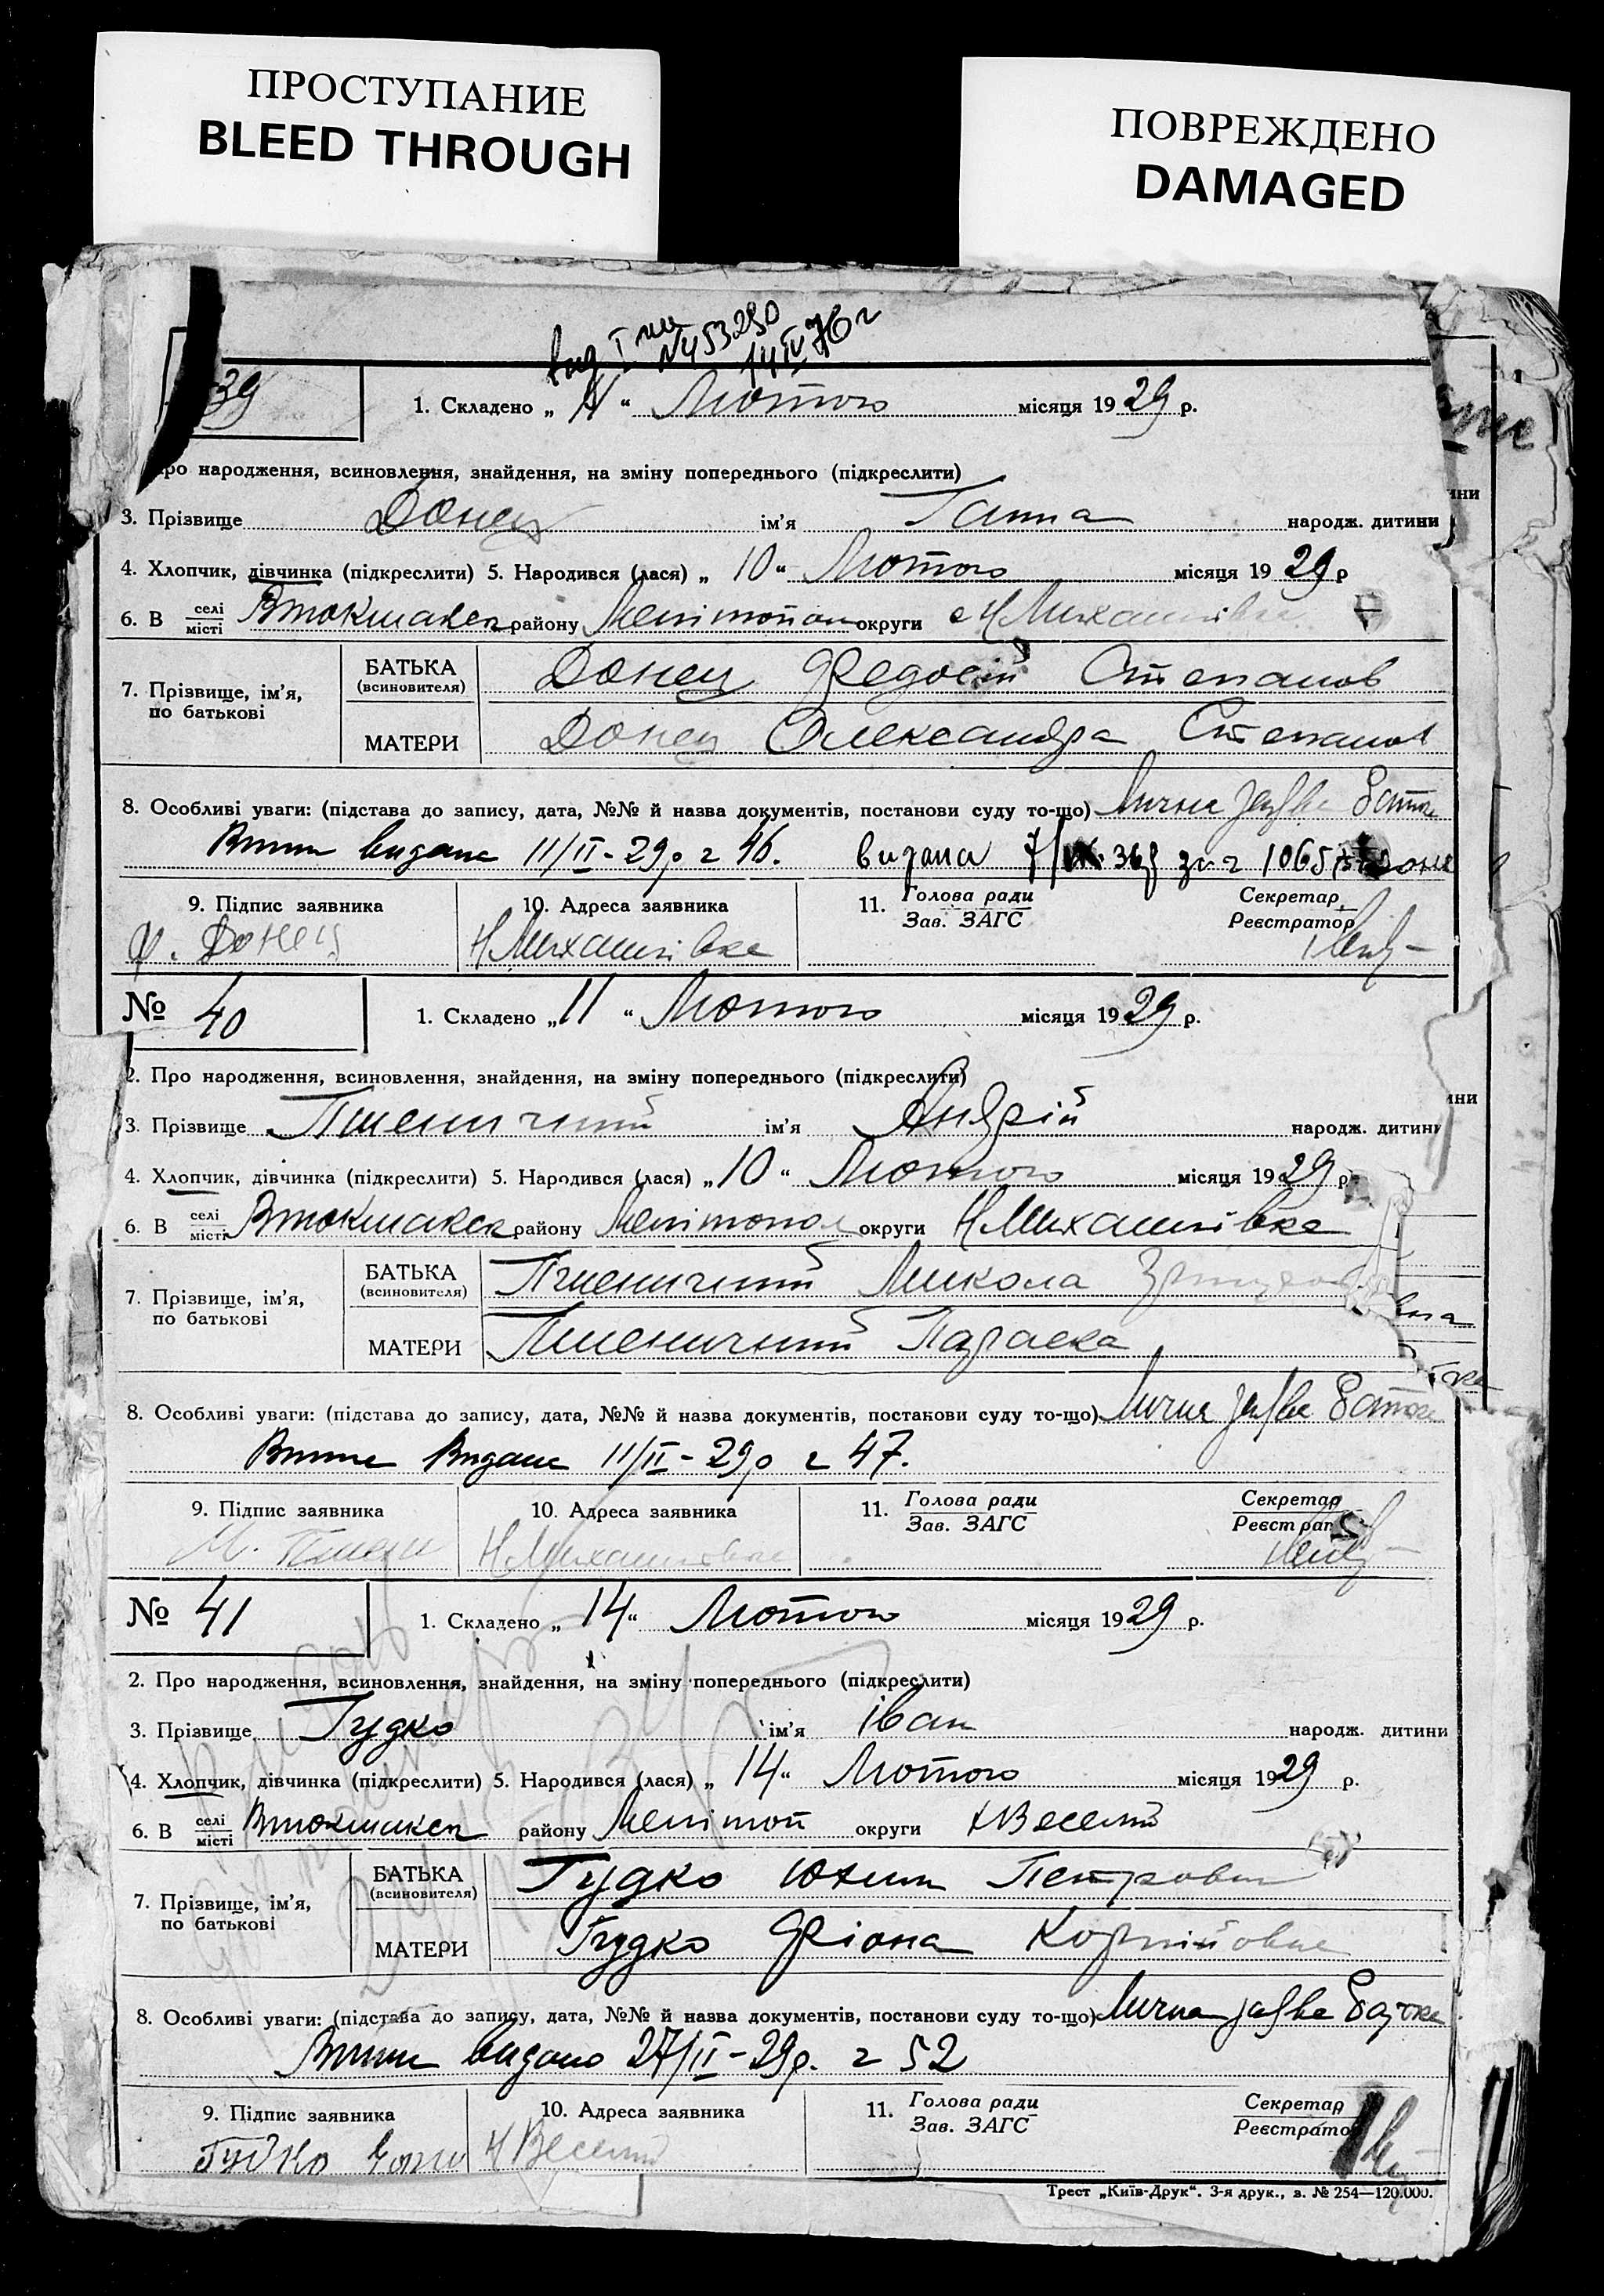 ПРОСТУПАНИЕ
BLEED THROUGH
ПОВРЕЖДЕНО
DAMAGED
N453290
14 IV 76 г
39
1. Складено „ “ Лютого місяця 1929 р.
ро народження, всиновлення, знайдення, на зміну попереднього (підкреслити)
3. Прізвище Донец ім'я Ганна народж. дитини
4. Хлопчик, дівчинка (підкреслити) 5. Народився (лася) „ 10 “ Лютого місяця 1929 р
6. В селі місті Втокмакск району Мелітопол округи с Н Михайлівка
7. Прізвище, ім'я, по батькові
БАТЬКА (всиновителя) Донец Федосій Степанов
МАТЕРИ Донец Олександра Степанов
8. Особливі уваги: (підстава до запису, дата, №№ й назва документів, постанови суду то-що) Лична заява Батка
видана 11/II-29р г 46. видана 1065
9. Підпис заявника 10. Адреса заявника 11. Голова ради Зав. ЗАГС Секретар Реєстратор
Ф. Донец Н Михайлівка
№ 40 1. Складено „ 11 “ Лютого місяця 1929 р.
2. Про народження, всиновлення, знайдення, на зміну попереднього (підкреслити)
3. Прізвище Пшеничний ім'я Андрій народж. дитини
4. Хлопчик, дівчинка (підкреслити) 5. Народився (лася) „ 10 “ Лютого місяця 1929 р
6. В селі місті Втокмакск району Мелітопол округи Н Михайлівка
7. Прізвище, ім'я, по батькові
БАТЬКА (всиновителя) Пшеничний Микола
МАТЕРИ Пшеничний Параска
8. Особливі уваги: (підстава до запису, дата, №№ й назва документів, постанови суду то-що) Лична заява Батка
Видане 11/II-29р г 47.
9. Підпис заявника 10. Адреса заявника 11. Голова ради Зав. ЗАГС Секретар Реєстрат
Н Михайлівка
№ 41 1. Складено „ 14 “ Лютого місяця 1929 р.
2. Про народження, всиновлення, знайдення, на зміну попереднього (підкреслити)
3. Прізвище Гудко ім'я Іван народж. дитини
4. Хлопчик, дівчинка (підкреслити) 5. Народився (лася) „ 14 “ Лютого місяця 1929 р.
6. В селі місті Втокмакск району Меліпоп округи х Веселий
7. Прізвище, ім'я, по батькові
БАТЬКА (всиновителя) Гудко Юхим Петрович
МАТЕРИ Гудко Фіона Корнійовна
8. Особливі уваги: (підстава до запису, дата, №№ й назва документів, постанови суду то-що) Лична заява Батка
видано 27/II-29р. г 52
9. Підпис заявника 10. Адреса заявника 11. Голова ради Зав. ЗАГС Секретар Реєстрато
Гудко х Веселий
Трест „Київ-Друк“. 3-я друк., з. № 254—120.000.